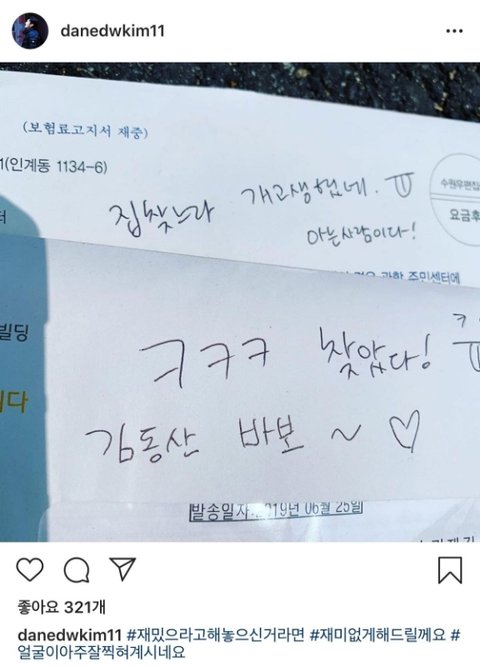 danedwkim11
(보험료고지서 재중)
1(인계동 1134-6)
수원우편집
요금후
집찾느라 개고생했네. ㅠ
아는사람이다!
주민센터에
빌딩
ㅋㅋㅋ 찾았다! ㅠ
김동산 바보 ~ ♡
다
발송일자: 2019년 06월 25일
좋아요 321개
danedwkim11 #재밌으라고해놓으신거라면 #재미없게해드릴께요 #
얼굴이아주잘찍혀계시네요